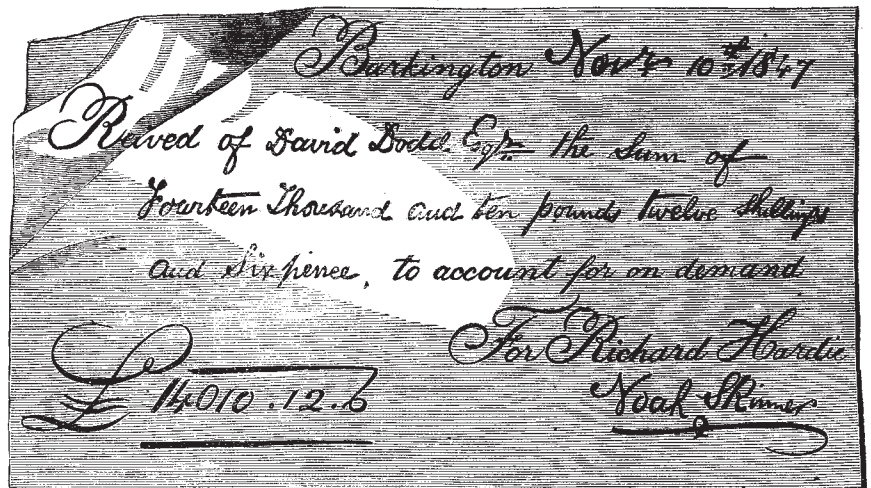 Barkington Novr 10th 1847
Received of David Dodd Esqre the sum of
Fourteen Thousand and ten pounds twelve shillings
and Six pence, to account for on demand
For Richard Hardie
£14010.12.6
Noah Skinner